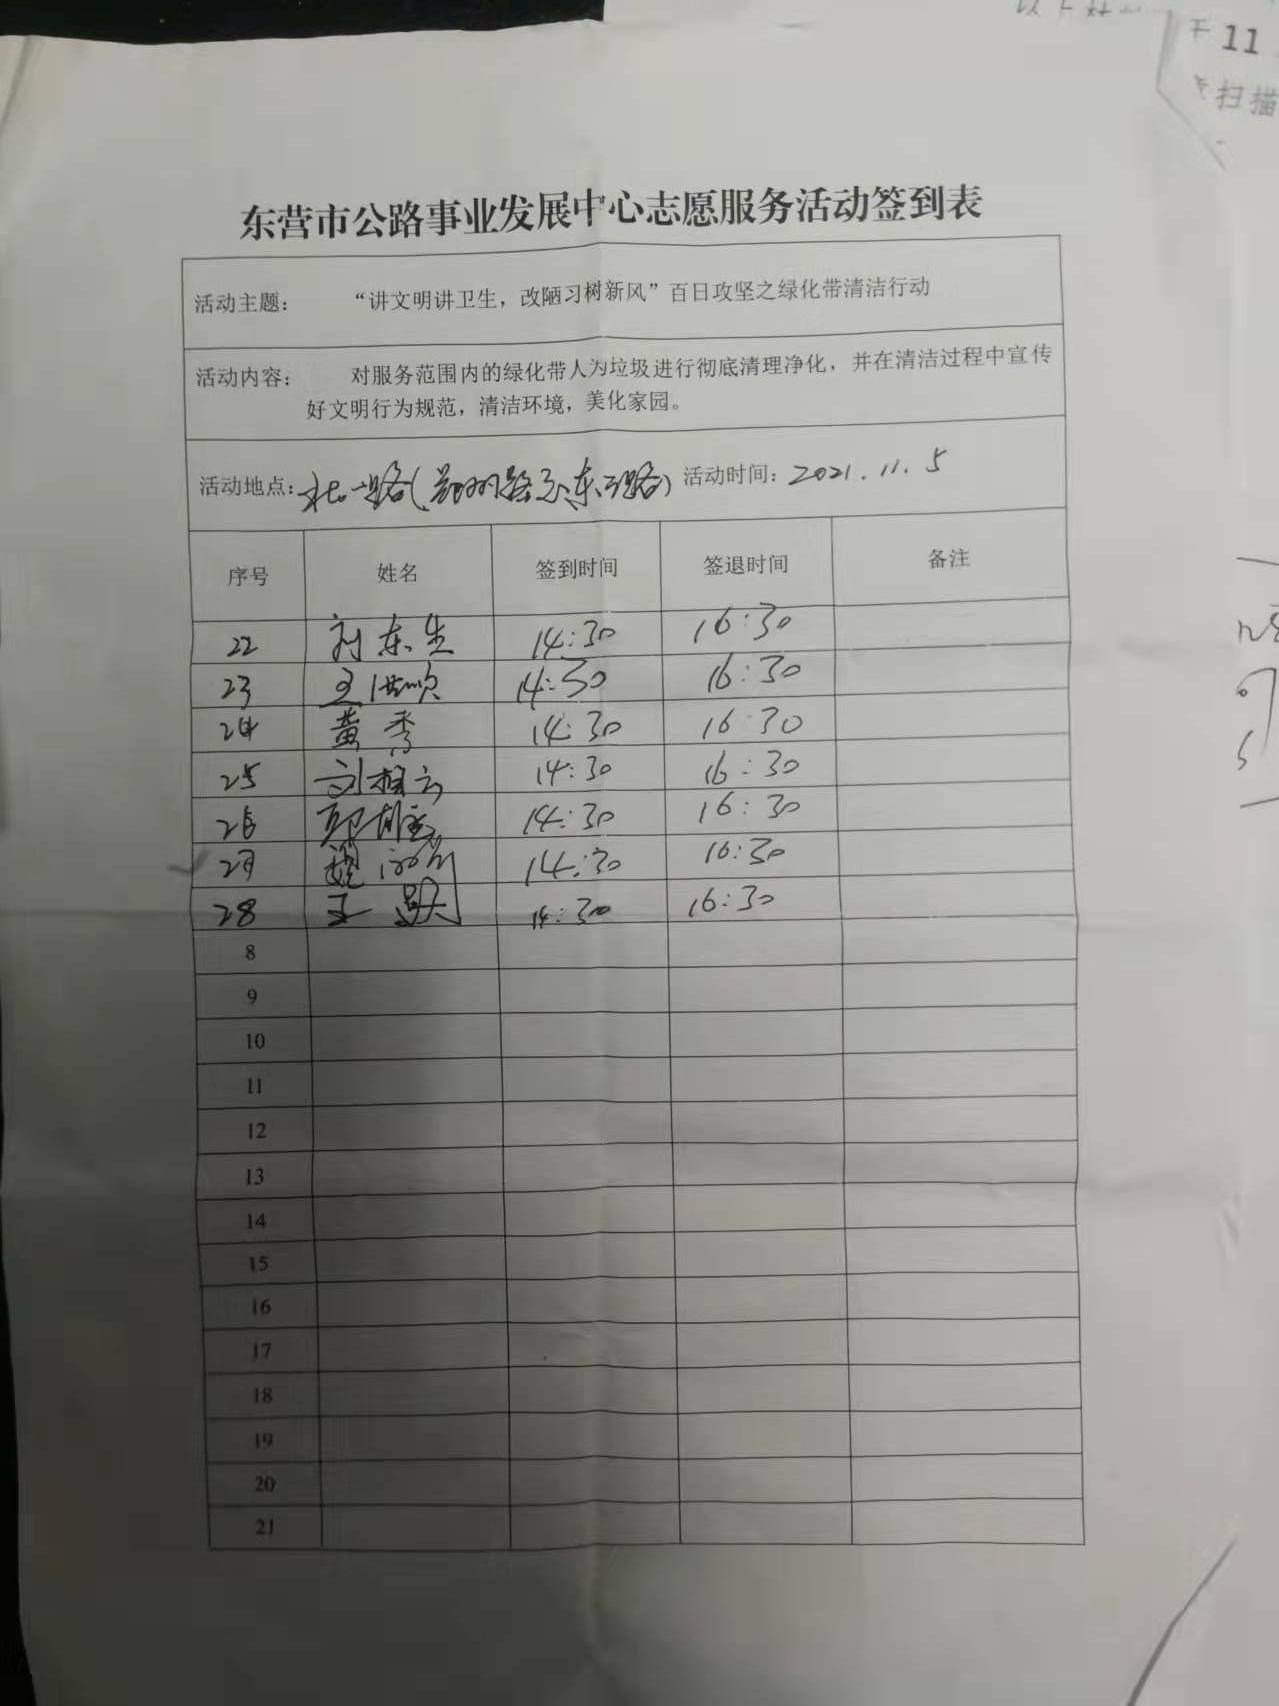 于11
扫描
东营市公路事业发展中心志愿服务活动签到表
活动主题： “讲文明讲卫生，改陋习树新风”百日攻坚之绿化带清洁行动
活动内容： 对服务范围内的绿化带人为垃圾进行彻底清理净化，并在清洁过程中宣传
好文明行为规范，清洁环境，美化家园。
活动地点： 北一路 东二路) 活动时间：2021.11.5
序号 姓名 签到时间 签退时间 备注
22 刘东生 14:30 16:30
23 王洪顺 14:30 16:30
24 黄秀 14:30 16:30
25 刘相云 14:30 16:30
26 14:30 16:30
27 14:30 16:30
28 王 14:30 16:30
8
9
10
11
12
13
14
15
16
17
18
19
20
21